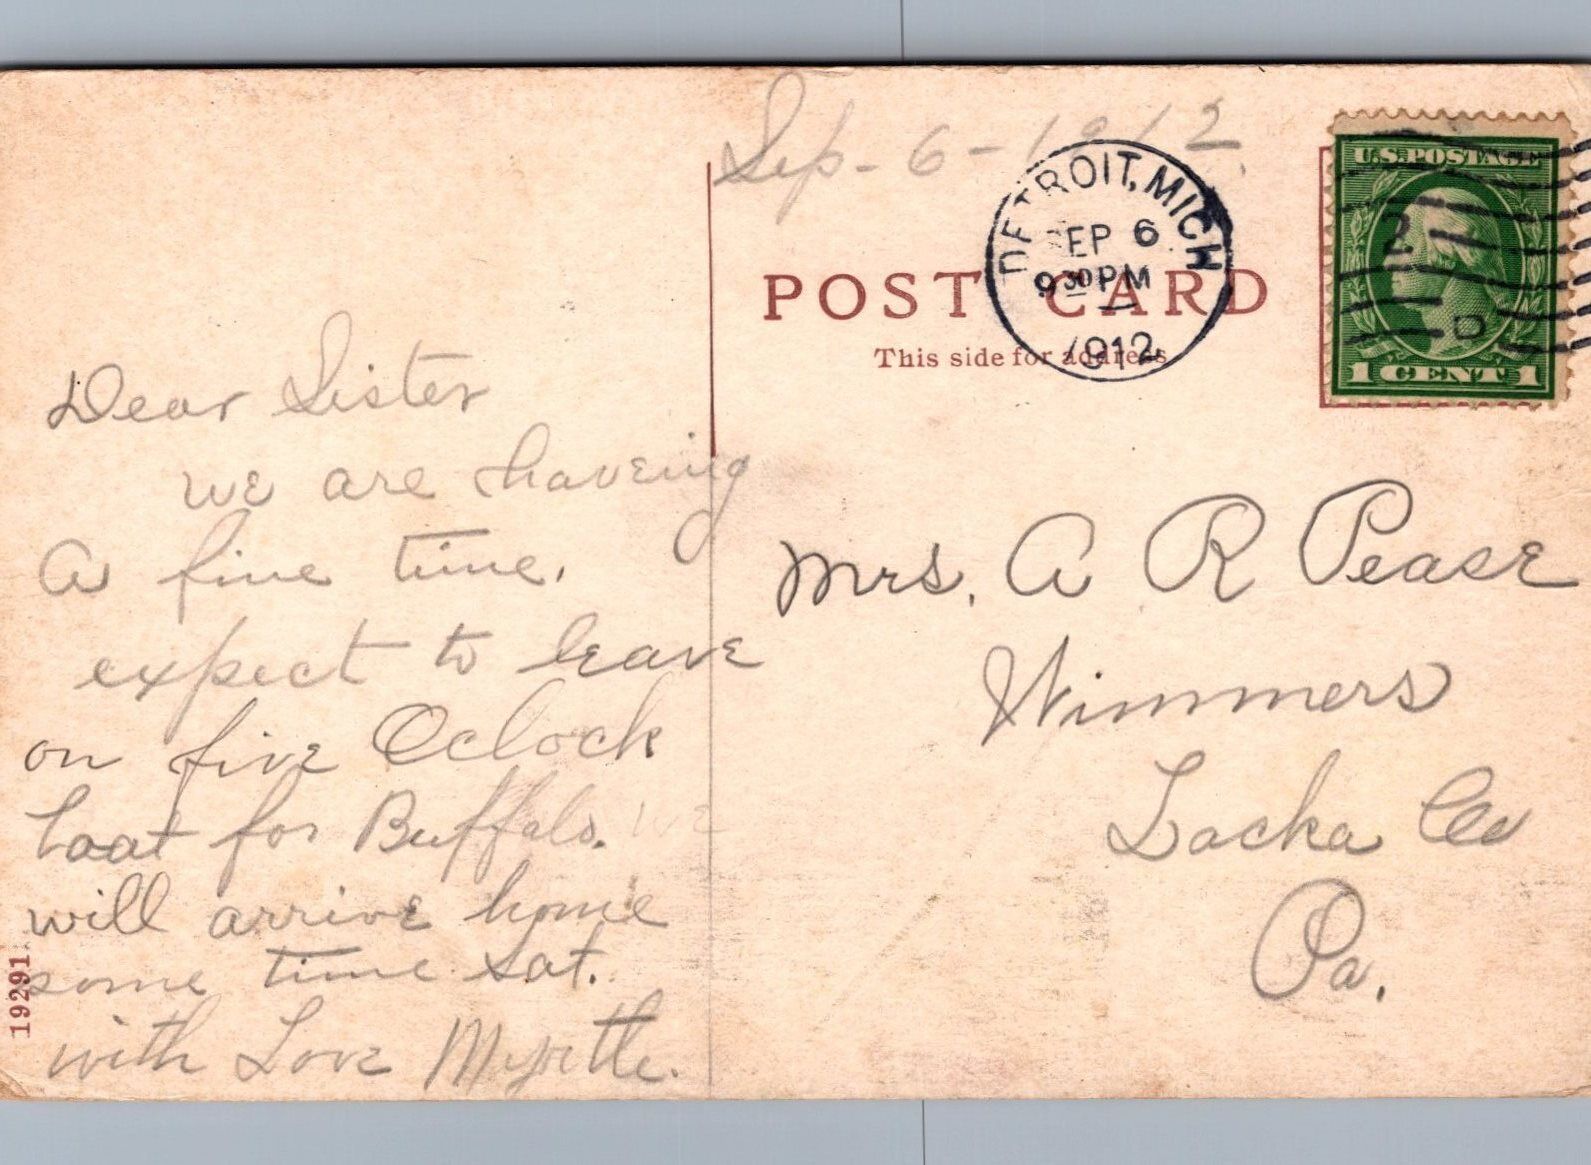 Sep - 6 - 1912.
DETROIT, MICH
SEP 6
9 30 PM
1912
U.S. POSTAGE
1 CENT 1
POST CARD
This side for address
Dear Sister
we are haveing
a fine time.
expect to leave
on five Oclock
boat for Buffalo. we
will arrive home
some time Sat.
with Love Myrtle.
Mrs. A R Pease
Wimmers
Lacka Co
Pa.
19291